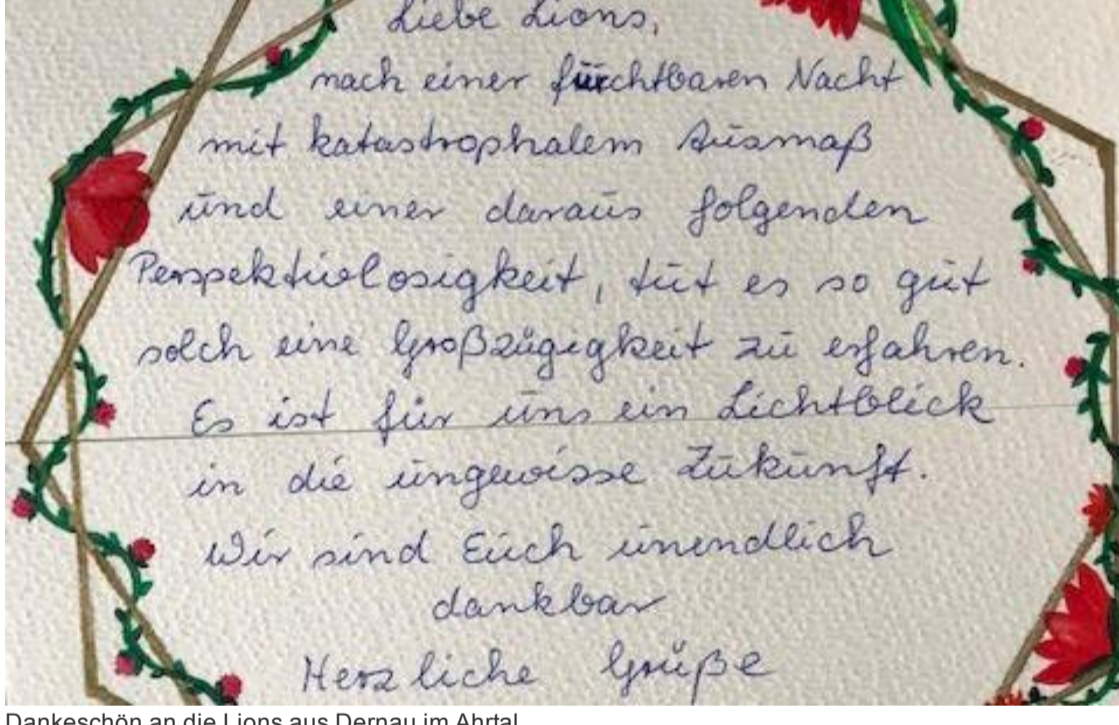 Liebe Lions,
nach einer furchtbaren Nacht
mit katastrophalem Ausmaß
und einer daraus folgenden
Perspektivlosigkeit, tut es so gut
solch eine Großzügigkeit zu erfahren.
Es ist für uns ein Lichtblick
in die ungewisse Zukunft.
Wir sind Euch unendlich
dankbar
Herzliche Grüße
Dankeschön an die Lions aus Dernau im Ahrtal